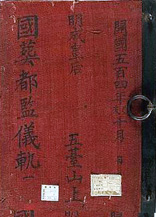 開國五百四年十月 日
明成皇后
五臺山上
國葬都監儀軌 一